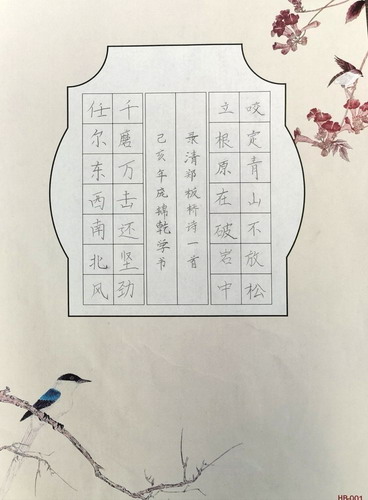 咬定青山不放松
立根原在破岩中
录清郑板桥诗一首
己亥年庞锦乾学书
千磨万击还坚劲
任尔东西南北风
HB-001